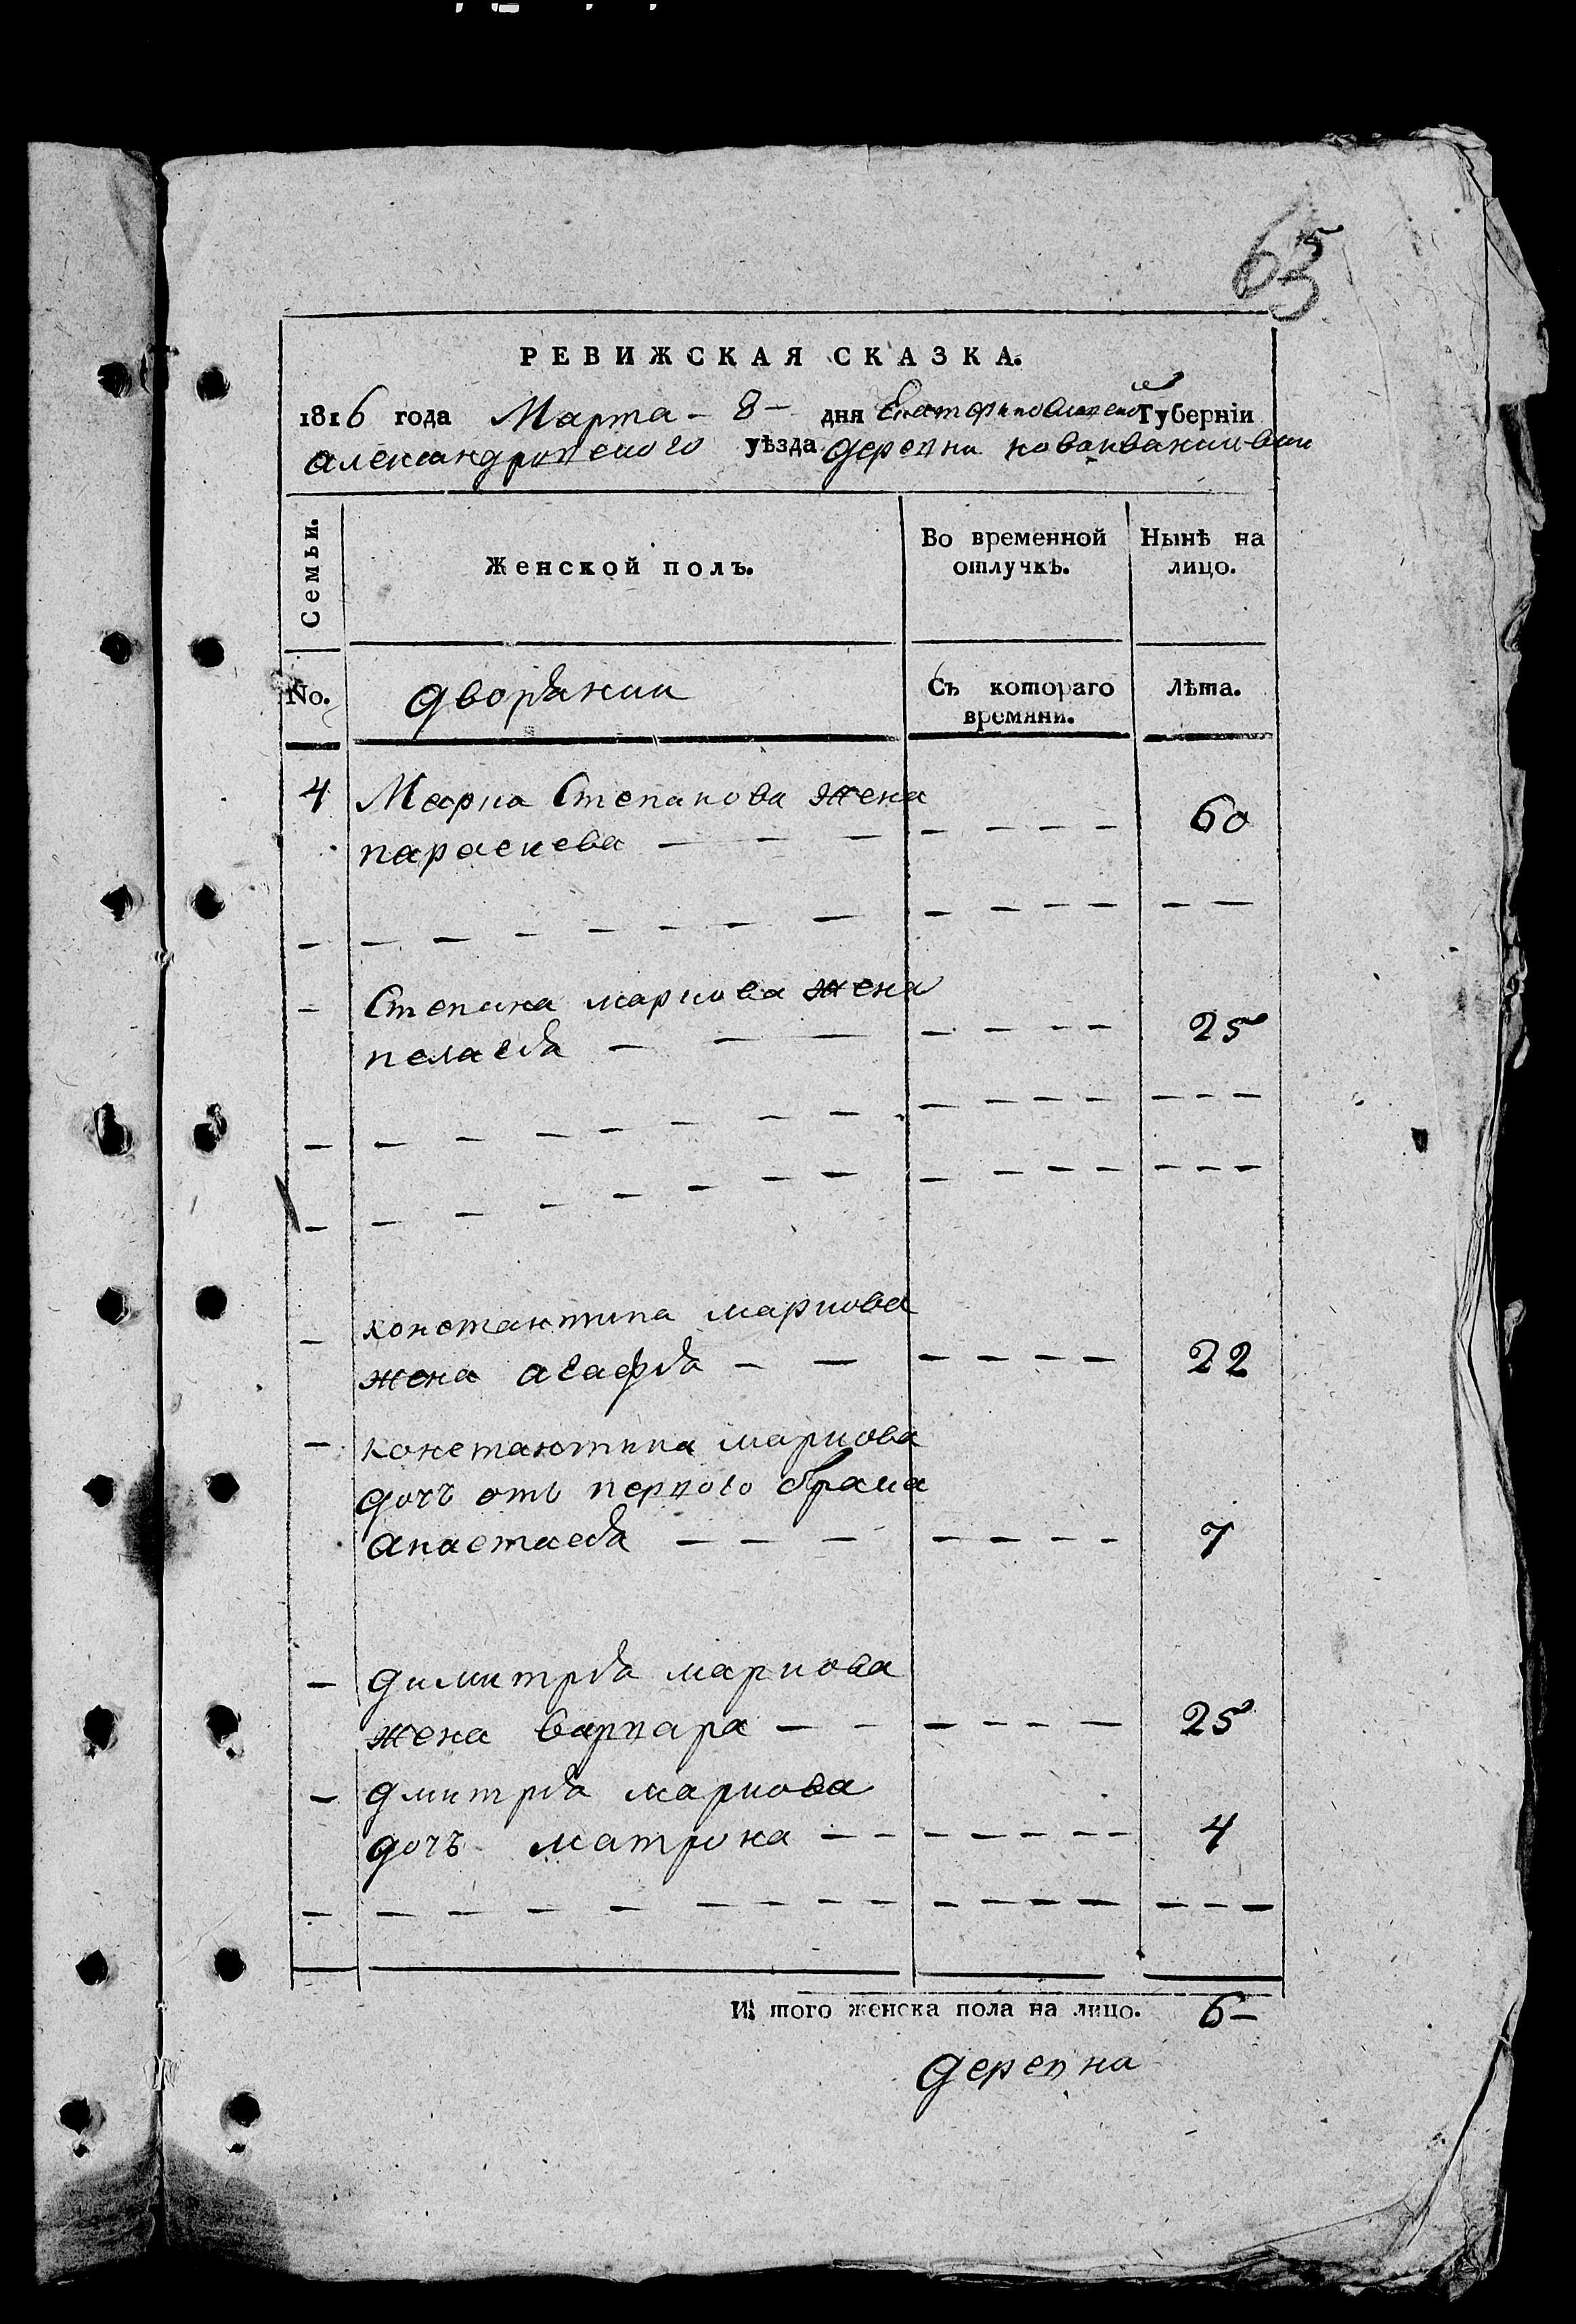 65
РЕВИЖСКАЯ СКАЗКА.
1816 года Марта - 8 - дня Екатеринославской Губерніи
александровского уѣзда деревни новоивановки
Семьи.
Женской полъ.
Во временной отлучкѣ.
Нынѣ на лицо.
No.
дворянки
Съ котораго времяни.
Лѣта.
4 Марка Степанова жена
параскева 60
Степана маркова жена
пелагѣя 25
константина маркова
жена агафія 22
константина маркова
дочъ отъ первого брака
анастасія 7
димитрія маркова
жена варвара 25
дмитрія маркова
дочъ матрона 4
И того женска пола на лицо. 6
деревна